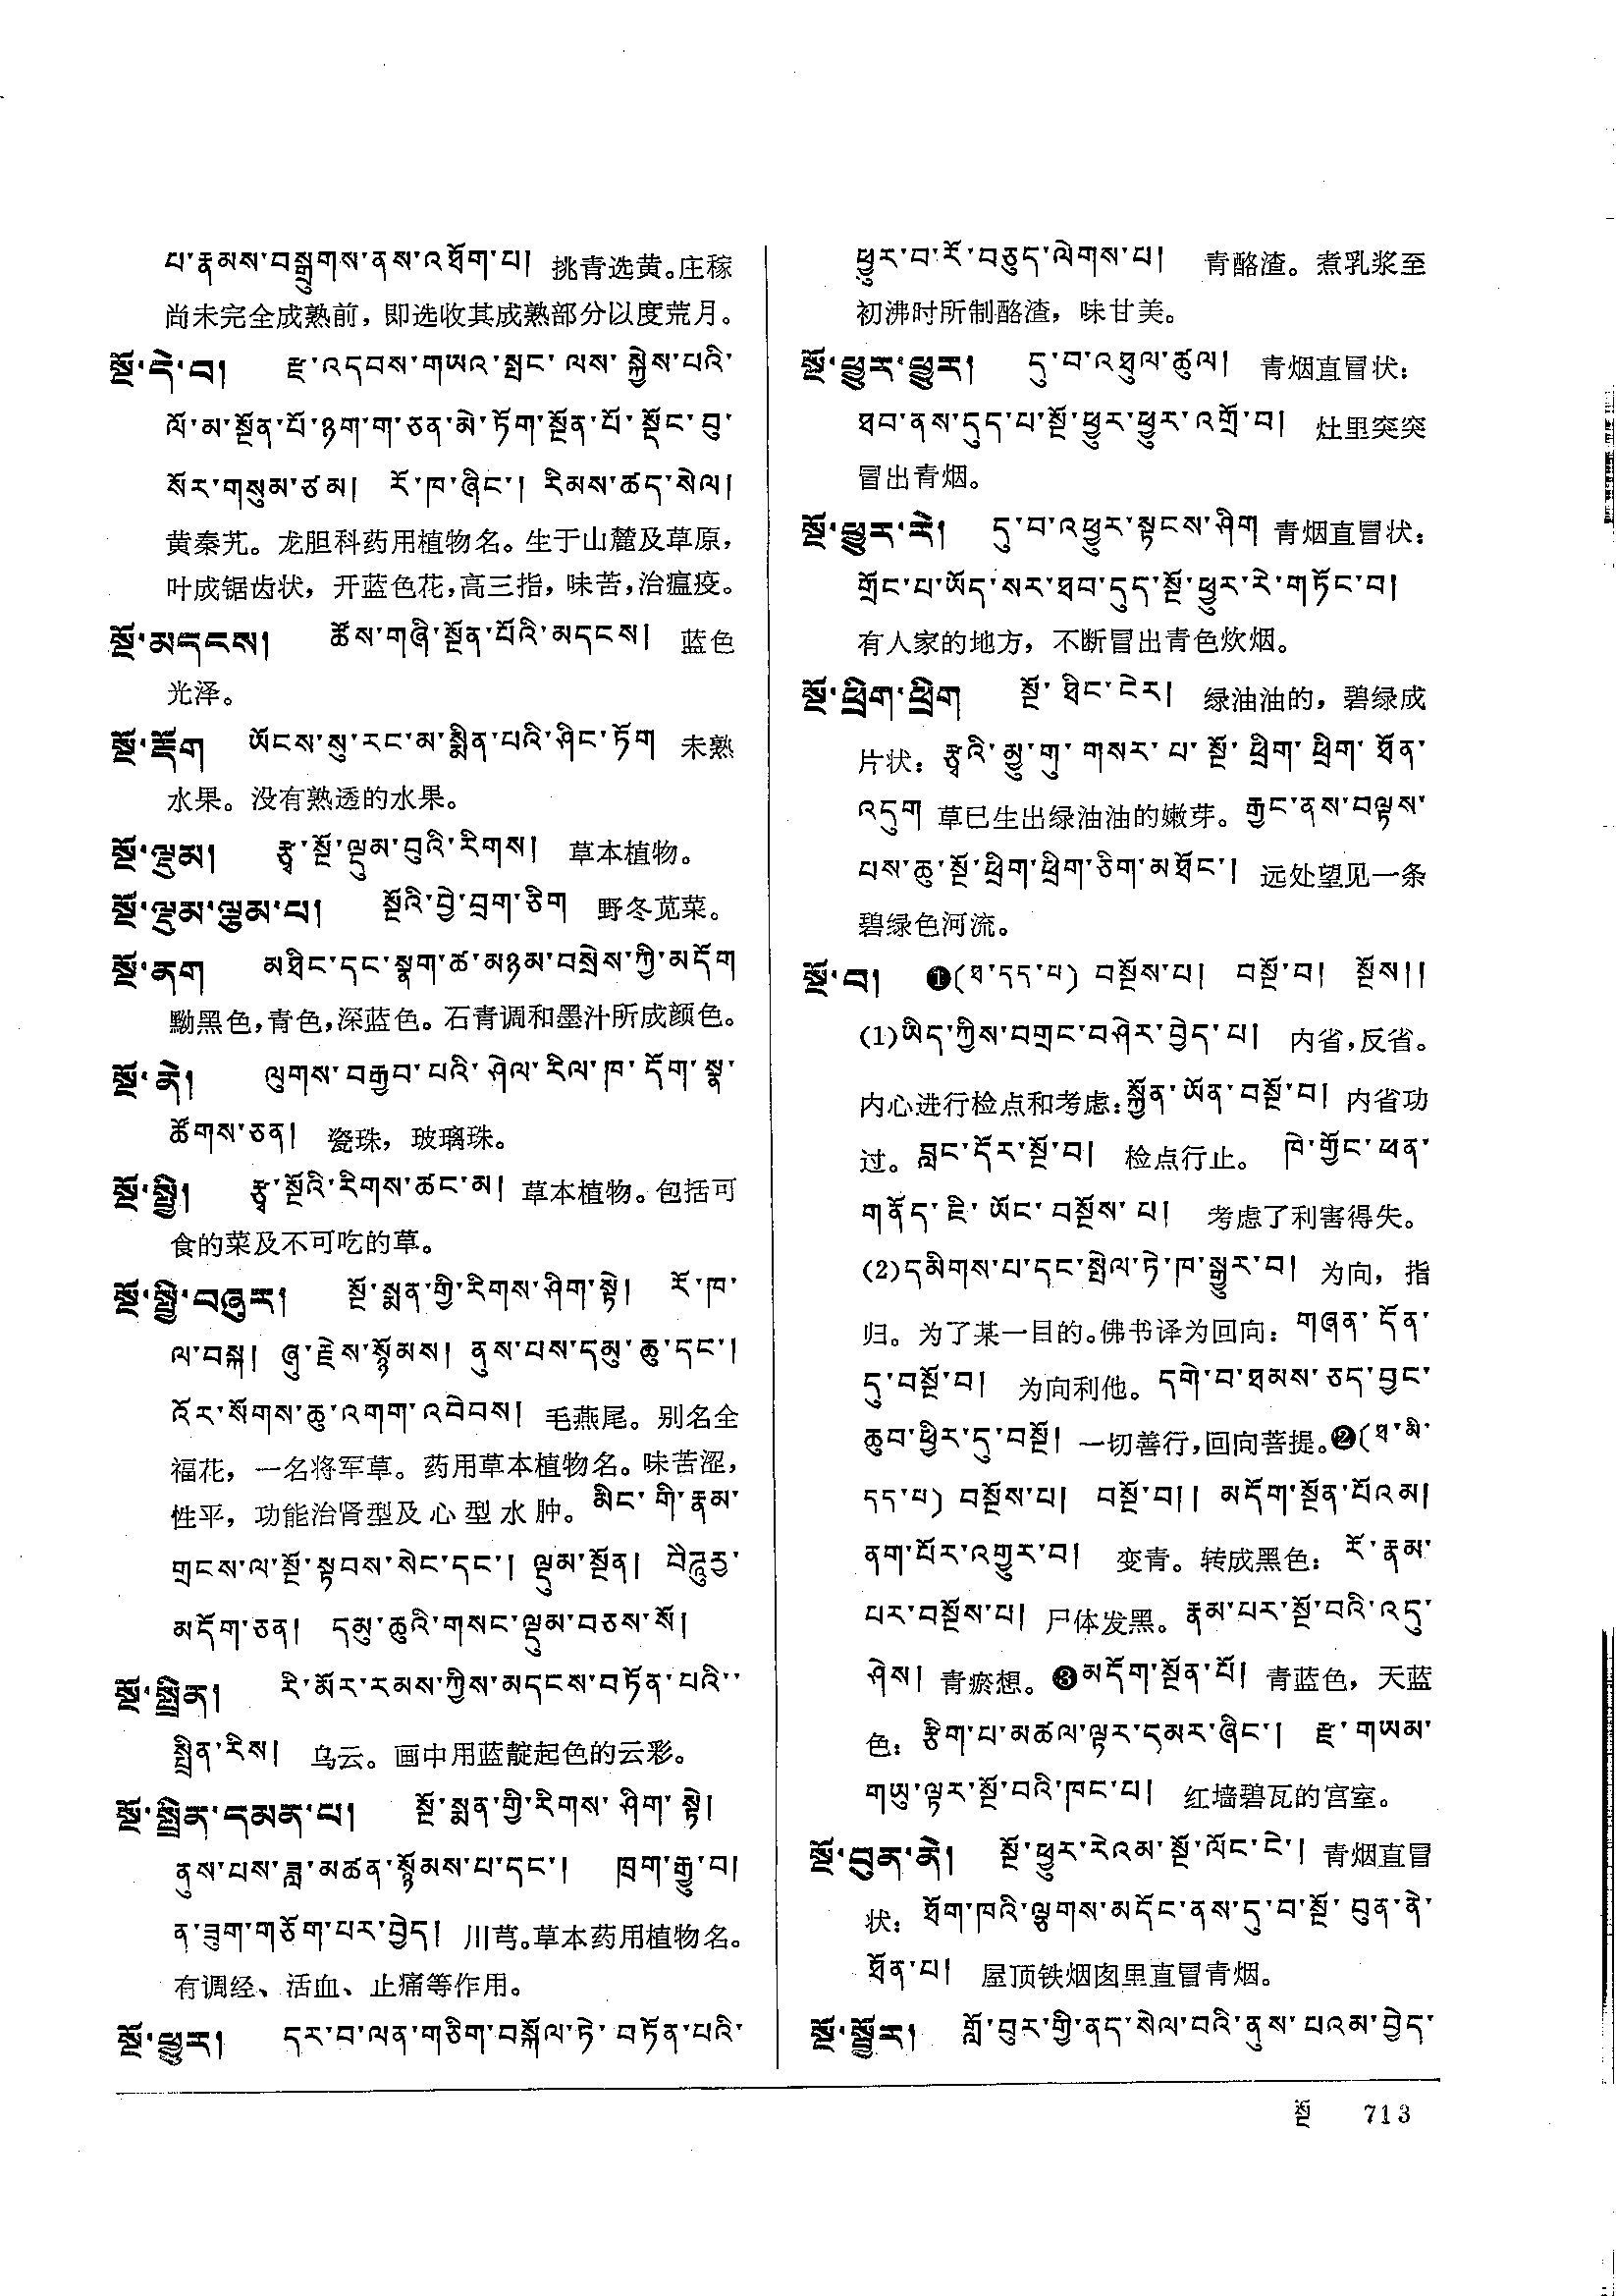 པ་རྣམས་བསྒྲུགས་ནས་འཐོག་པ། 挑青选黄。庄稼
尚未完全成熟前，即选收其成熟部分以度荒月。
སྔོ་དེ་བ། རྫ་འདབས་གཡའ་སྤང་ལས་སྐྱེས་པའི་
ལོ་མ་སྔོན་པོ་ཉག་ག་ཅན་མེ་ཏོག་སྔོན་པོ་སྡོང་བུ་
སོར་གསུམ་ཙམ། རོ་ཁ་ཞིང་། རིམས་ཚད་སེལ།
黄秦艽。龙胆科药用植物名。生于山麓及草原，
叶成锯齿状，开蓝色花，高三指，味苦，治瘟疫。
སྔོ་མདངས། ཚོས་གཞི་སྔོན་པོའི་མདངས། 蓝色
光泽。
སྔོ་རྡོག ཡོངས་སུ་རང་མ་སྨིན་པའི་ཤིང་ཏོག 未熟
水果。没有熟透的水果。
སྔོ་ལྡུམ། རྩྭ་སྔོ་ལྡུམ་བུའི་རིགས། 草本植物。
སྔོ་ལྡུམ་ལྕུམ་པ། སྔོའི་བྱེ་བྲག་ཅིག 野冬苋菜。
སྔོ་ནག མཐིང་དང་སྣག་ཚ་མཉམ་བསྲེས་ཀྱི་མདོག
黝黑色，青色，深蓝色。石青调和墨汁所成颜色。
སྔོ་ནེ། ལུགས་བརྒྱབ་པའི་ཤེལ་རིལ་ཁ་དོག་སྣ་
ཚོགས་ཅན། 瓷珠，玻璃珠。
སྔོ་སྤྱི། རྩྭ་སྔོའི་རིགས་ཚང་མ། 草本植物。包括可
食的菜及不可吃的草。
སྔོ་སྤྱི་བཞུར། སྔོ་སྨན་གྱི་རིགས་ཤིག་སྟེ། རོ་ཁ་
ལ་བསྐ། ཞུ་རྗེས་སྙོམས། ནུས་པས་དམུ་ཆུ་དང་།
འོར་སོགས་ཆུ་འགག་འབེབས། 毛燕尾。别名全
福花，一名将军草。药用草本植物名。味苦涩，
性平，功能治肾型及心型水肿。མིང་གི་རྣམ་
གྲངས་ལ་སྔོ་སྟབས་སེང་དང་། ལྡུམ་སྔོན། བཻཌཱུརྱ་
མདོག་ཅན། དམུ་ཆུའི་གསང་ལྡུམ་བཅས་སོ།
སྔོ་སྤྲིན། རི་མོར་རམས་ཀྱིས་མདངས་བཏོན་པའི་
སྤྲིན་རིས། 乌云。画中用蓝靛起色的云彩。
སྔོ་སྤྲིན་དམན་པ། སྔོ་སྨན་གྱི་རིགས་ཤིག་སྟེ།
ནུས་པས་ཟླ་མཚན་སྙོམས་པ་དང་། ཁྲག་རྒྱུ་བ།
ན་ཟུག་གཅོག་པར་བྱེད། 川芎。草本药用植物名。
有调经、活血、止痛等作用。
སྔོ་ཕྱུར། དར་བ་ལན་གཅིག་བསྐོལ་ཏེ་བཏོན་པའི་
ཕྱུར་བ་རོ་བཅུད་ལེགས་པ། 青酪渣。煮乳浆至
初沸时所制酪渣，味甘美。
སྔོ་ཕྱུར་ཕྱུར། དུ་བ་འཐུལ་ཚུལ། 青烟直冒状：
ཐབ་ནས་དུད་པ་སྔོ་ཕྱུར་ཕྱུར་འགྲོ་བ། 灶里突突
冒出青烟。
སྔོ་ཕྱུར་རེ། དུ་བ་འཕྱུར་སྟངས་ཤིག 青烟直冒状：
གྲོང་པ་ཡོད་སར་ཐབ་དུད་སྔོ་ཕྱུར་རེ་གཏོང་བ།
有人家的地方，不断冒出青色炊烟。
སྔོ་ཕྲིག་ཕྲིག སྔོ་ཐིང་ངེར། 绿油油的，碧绿成
片状：རྩྭའི་མྱུ་གུ་གསར་པ་སྔོ་ཕྲིག་ཕྲིག་ཐོན་
འདུག 草已生出绿油油的嫩芽。རྒྱང་ནས་བལྟས་
པས་ཆུ་སྔོ་ཕྲིག་ཕྲིག་ཅིག་མཐོང་། 远处望见一条
碧绿色河流。
སྔོ་བ། ❶(ཐ་དད་པ) བསྔོས་པ། བསྔོ་བ། སྔོས།།
(1)ཡིད་ཀྱིས་བགྲང་བཤེར་བྱེད་པ། 内省，反省。
内心进行检点和考虑：སྐྱོན་ཡོན་བསྔོ་བ། 内省功
过。བླང་དོར་སྔོ་བ། 检点行止。 ཁེ་གྱོང་ཕན་
གནོད་ཇི་ཡོང་བསྔོས་པ། 考虑了利害得失。
(2)དམིགས་པ་དང་སྤྲེལ་ཏེ་ཁ་སྒྱུར་བ། 为向，指
归。为了某一目的。佛书译为回向：གཞན་དོན་
དུ་བསྔོ་བ། 为向利他。དགེ་བ་ཐམས་ཅད་བྱང་
ཆུབ་ཕྱིར་དུ་བསྔོ། 一切善行，回向菩提。❷(ཐ་མི་
དད་པ) བསྔོས་པ། བསྔོ་བ།། མདོག་སྔོན་པོའམ།
ནག་པོར་འགྱུར་བ། 变青。转成黑色：རོ་རྣམ་
པར་བསྔོས་པ། 尸体发黑。རྣམ་པར་སྔོ་བའི་འདུ་
ཤེས། 青瘀想。❸མདོག་སྔོན་པོ། 青蓝色，天蓝
色：རྩིག་པ་མཚལ་ལྟར་དམར་ཞིང་། རྫ་གཡམ་
གཡུ་ལྟར་སྔོ་བའི་ཁང་པ། 红墙碧瓦的宫室。
སྔོ་བུན་ནེ། སྔོ་ཕྱུར་རེའམ་སྔོ་ལོང་ངེ་། 青烟直冒
状：ཐོག་ཁའི་ལྕགས་མདོང་ནས་དུ་བ་སྔོ་བུན་ནེ་
ཐོན་པ། 屋顶铁烟囱里直冒青烟。
སྔོ་སྦྱོར། གློ་བུར་གྱི་ནད་སེལ་བའི་ནུས་པའམ་བྱེད་
སྔོ 713